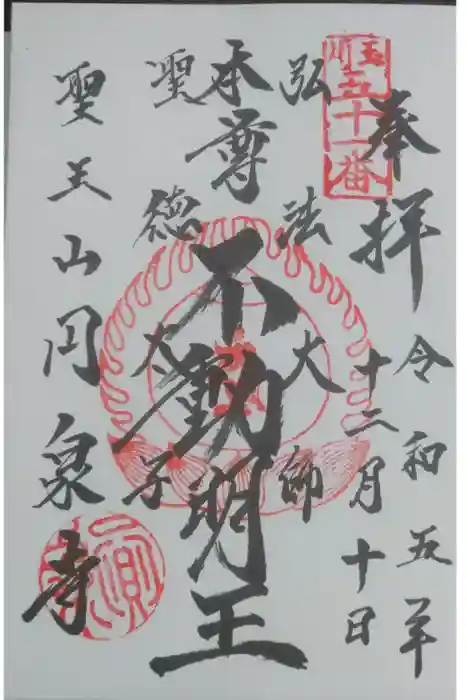 玉川
五十一番
奉拝
令和五年
十二月十日
弘法大師
本尊
不動明王
聖徳太子
聖王山円泉寺